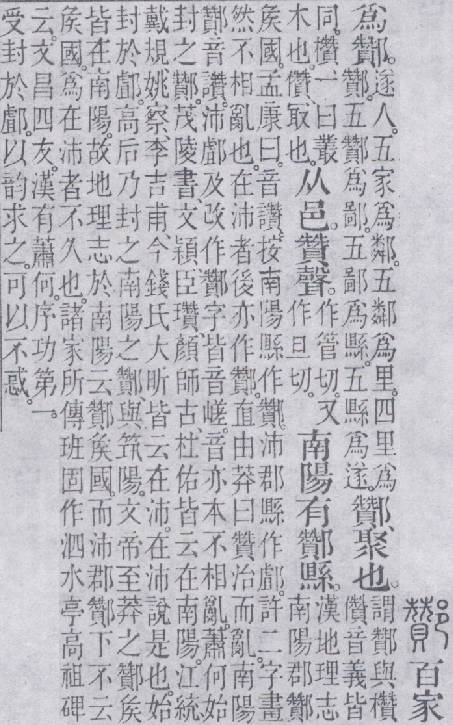 酇百家
爲酇。
遂人。五家爲鄰。五鄰爲里。四里爲
酇。五酇爲鄙。五鄙爲縣。五縣爲遂。
酇、聚也。
謂酇與欑
儹音義皆
同。欑一曰叢
木也。儹、取也。
从邑贊聲。
作管切。又
作旦切。
南陽有酇縣。
漢地理志
南陽郡酇
矦國。孟康曰。音讚。按南陽縣作酇。沛郡縣作䣜。許二字畫
然不相亂也。在沛者後亦作酇。直由莽曰贊治而亂。南陽
酇音讚。沛䣜及改作酇字皆音嵯。音亦本不相亂。蕭何始
封之酇。茂陵書、文穎、臣瓚、顏師古、杜佑皆云在南陽。江統、
戴規、姚察、李吉甫、今錢氏大昕皆云在沛。在沛說是也。始
封於䣜。高后乃封之南陽之酇與筑陽。文帝至莽之酇矦
皆在南陽。故地理志於南陽云酇矦國。而沛郡酇下不云
矦國。爲在沛者不久也。諸家所傳班固作泗水亭高祖碑
云。文昌四友。漢有蕭何。序功第一。
受封於䣜。以韵求之。可以不惑。